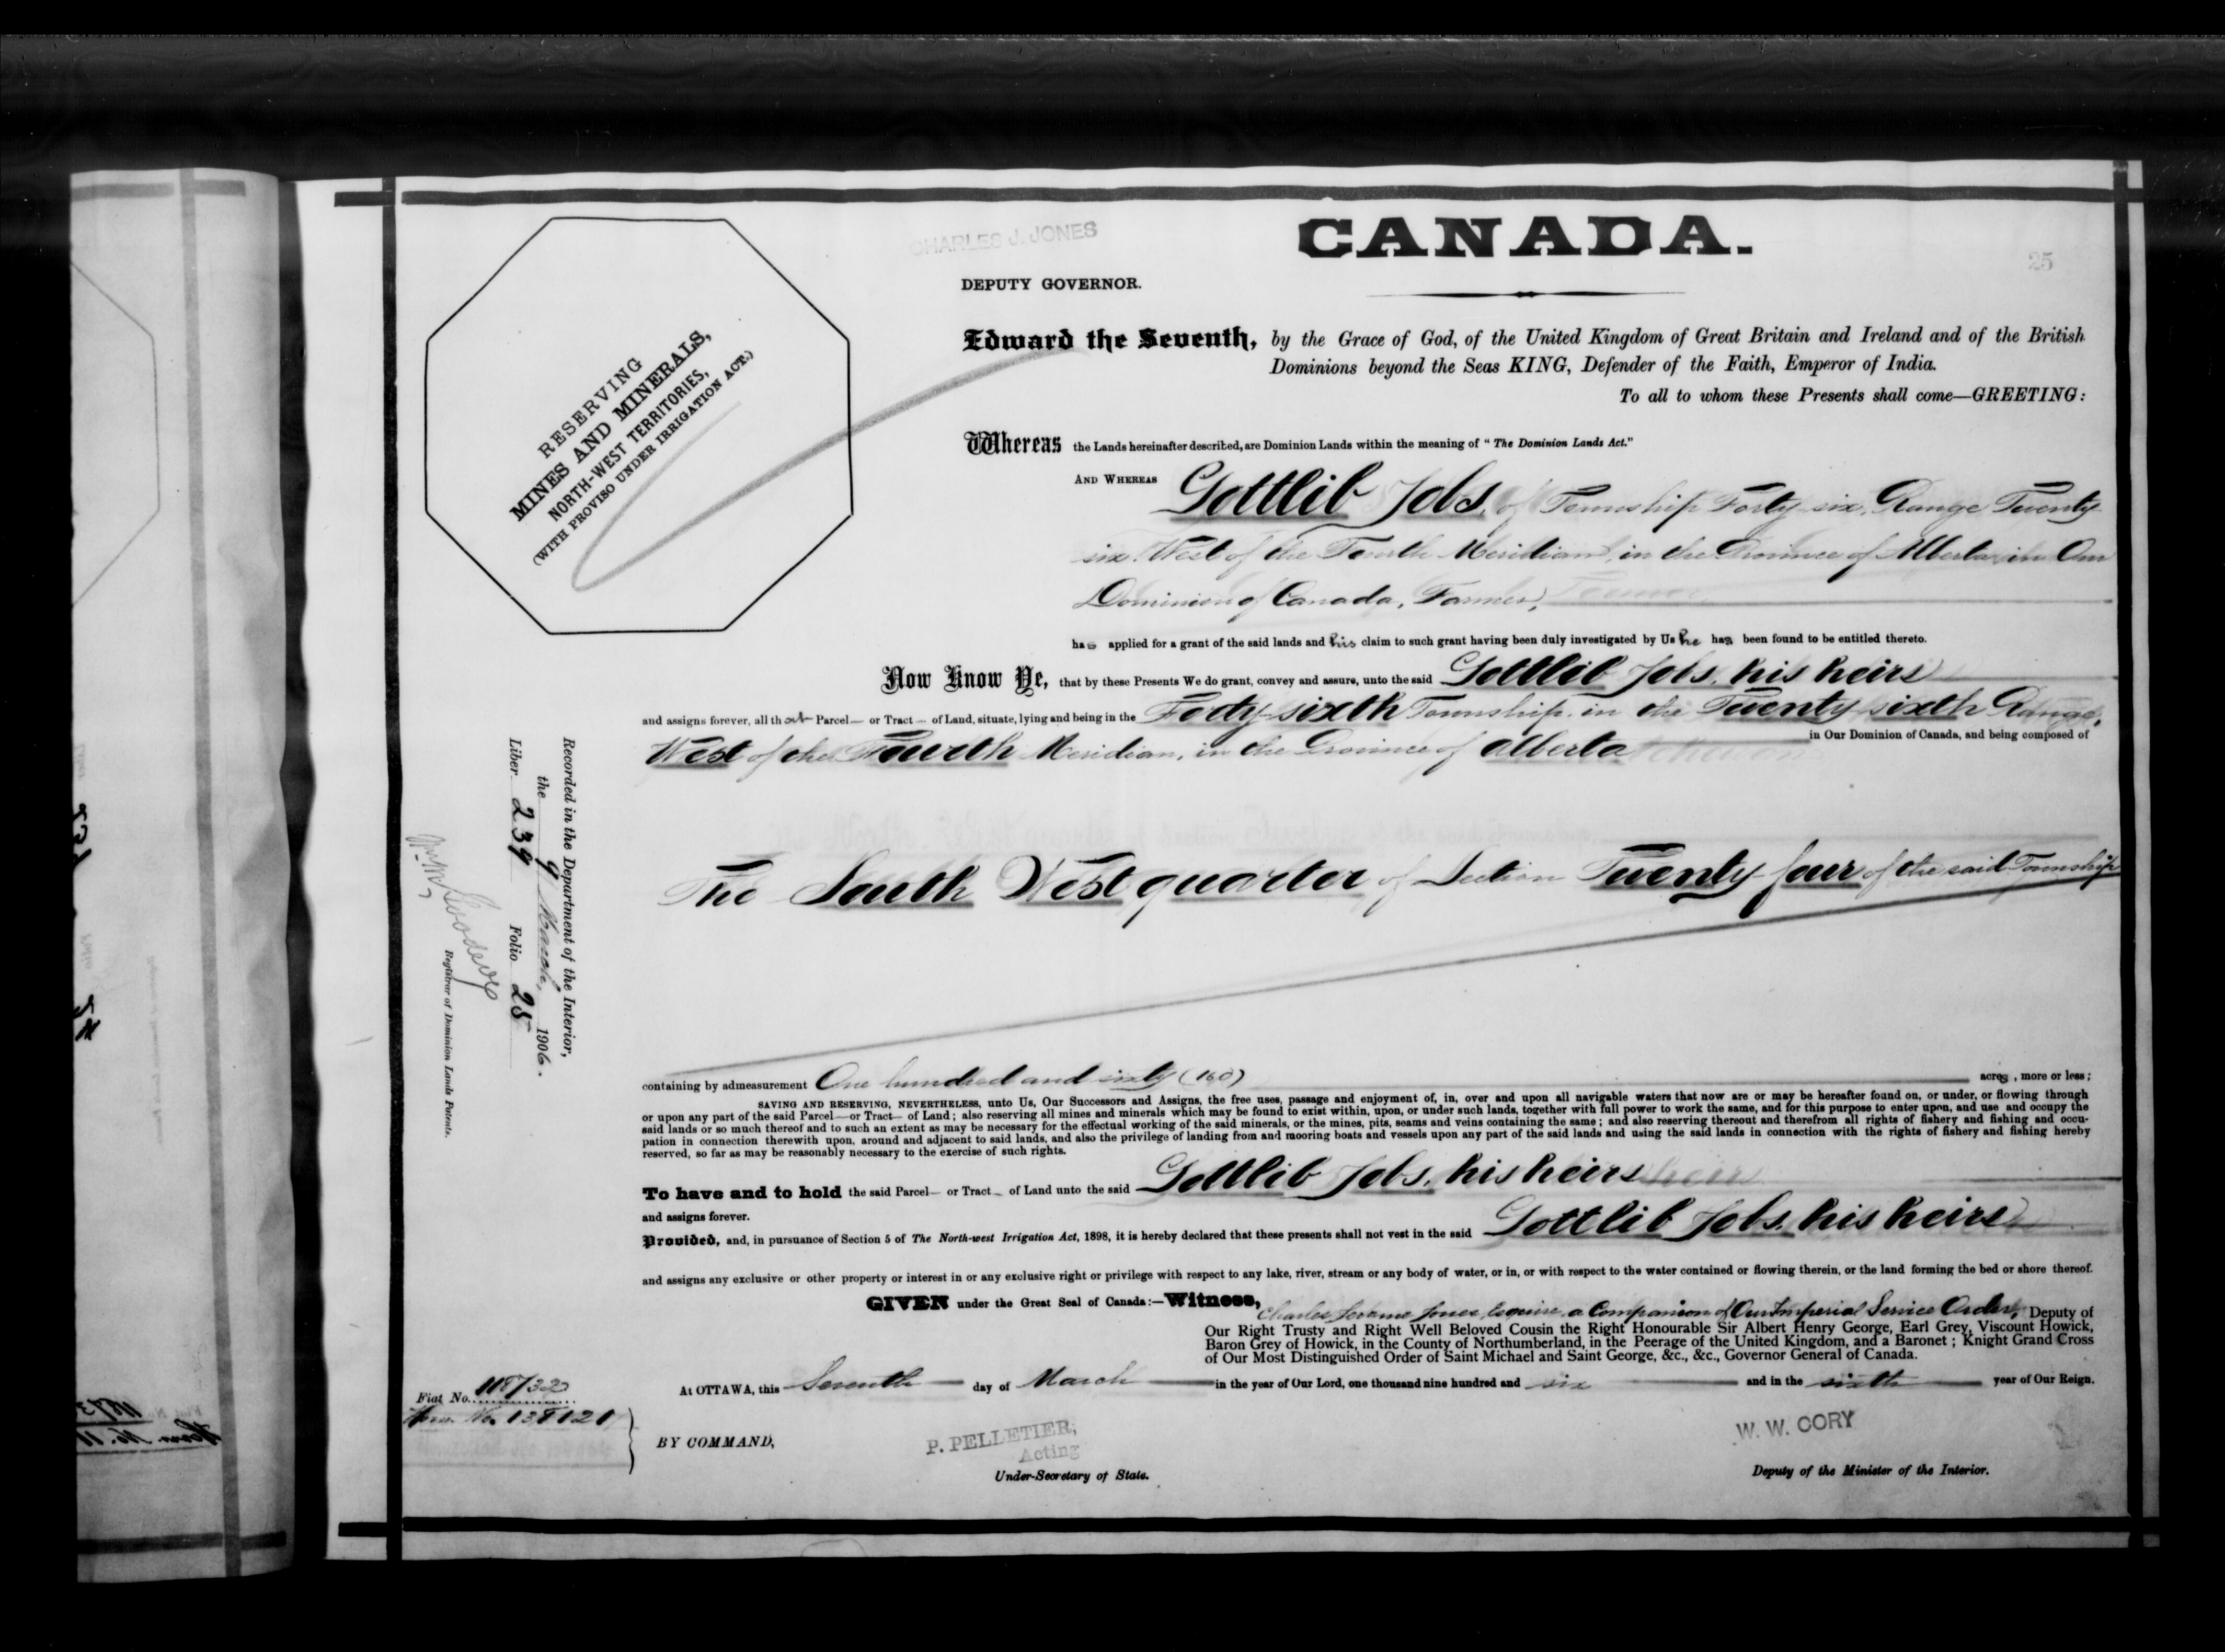 CHARLES J. JONES
CANADA.
25
DEPUTY GOVERNOR.
RESERVING
MINES AND MINERALS,
NORTH-WEST TERRITORIES,
(WITH PROVISO UNDER IRRIGATION ACT.)
Edward the Seventh, by the Grace of God, of the United Kingdom of Great Britain and Ireland and of the British
Dominions beyond the Seas KING, Defender of the Faith, Emperor of India.
To all to whom these Presents shall come—GREETING:
Whereas the Lands hereinafter described, are Dominion Lands within the meaning of "The Dominion Lands Act."
AND WHEREAS Gottlib Jobs, of Township Forty six, Range Twenty
six, West of the Fourth Meridian, in the Province of Alberta, in Our
Dominion of Canada, Farmer,
has applied for a grant of the said lands and his claim to such grant having been duly investigated by Us he has been found to be entitled thereto.
Now Know Ye, that by these Presents We do grant, convey and assure, unto the said Gottlib Jobs, his heirs
and assigns forever, all that Parcel— or Tract— of Land, situate, lying and being in the Forty-sixth Township, in the Twenty sixth Range,
West of the Fourth Meridian, in the Province of Alberta in Our Dominion of Canada, and being composed of
The South West quarter of Section Twenty four of the said Township
Recorded in the Department of the Interior,
the 9 March, 1906.
Liber 239 Folio 25
Registrar of Dominion Lands Patents.
containing by admeasurement One hundred and sixty (160) acres, more or less;
SAVING AND RESERVING, NEVERTHELESS, unto Us, Our Successors and Assigns, the free uses, passage and enjoyment of, in, over and upon all navigable waters that now are or may be hereafter found on, or under, or flowing through
or upon any part of the said Parcel—or Tract— of Land; also reserving all mines and minerals which may be found to exist within, upon, or under such lands, together with full power to work the same, and for this purpose to enter upon, and use and occupy the
said lands or so much thereof and to such an extent as may be necessary for the effectual working of the said minerals, or the mines, pits, seams and veins containing the same; and also reserving thereout and therefrom all rights of fishery and fishing and occu-
pation in connection therewith upon, around and adjacent to said lands, and also the privilege of landing from and mooring boats and vessels upon any part of the said lands and using the said lands in connection with the rights of fishery and fishing hereby
reserved, so far as may be reasonably necessary to the exercise of such rights.
To have and to hold the said Parcel— or Tract— of Land unto the said Gottlib Jobs, his heirs
and assigns forever.
Provided, and, in pursuance of Section 5 of The North-west Irrigation Act, 1898, it is hereby declared that these presents shall not vest in the said Gottlib Jobs, his heirs
and assigns any exclusive or other property or interest in or any exclusive right or privilege with respect to any lake, river, stream or any body of water, or in, or with respect to the water contained or flowing therein, or the land forming the bed or shore thereof.
GIVEN under the Great Seal of Canada:—Witness, Charles Jerome Jones, Esquire, a Companion of Our Imperial Service Order, Deputy of
Our Right Trusty and Right Well Beloved Cousin the Right Honourable Sir Albert Henry George, Earl Grey, Viscount Howick,
Baron Grey of Howick, in the County of Northumberland, in the Peerage of the United Kingdom, and a Baronet; Knight Grand Cross
of Our Most Distinguished Order of Saint Michael and Saint George, &c., &c., Governor General of Canada.
At OTTAWA, this Seventh day of March in the year of Our Lord, one thousand nine hundred and six and in the sixth year of Our Reign.
Fiat No. 118732
BY COMMAND,
P. PELLETIER,
Acting
Under-Secretary of State.
W. W. CORY
Deputy of the Minister of the Interior.